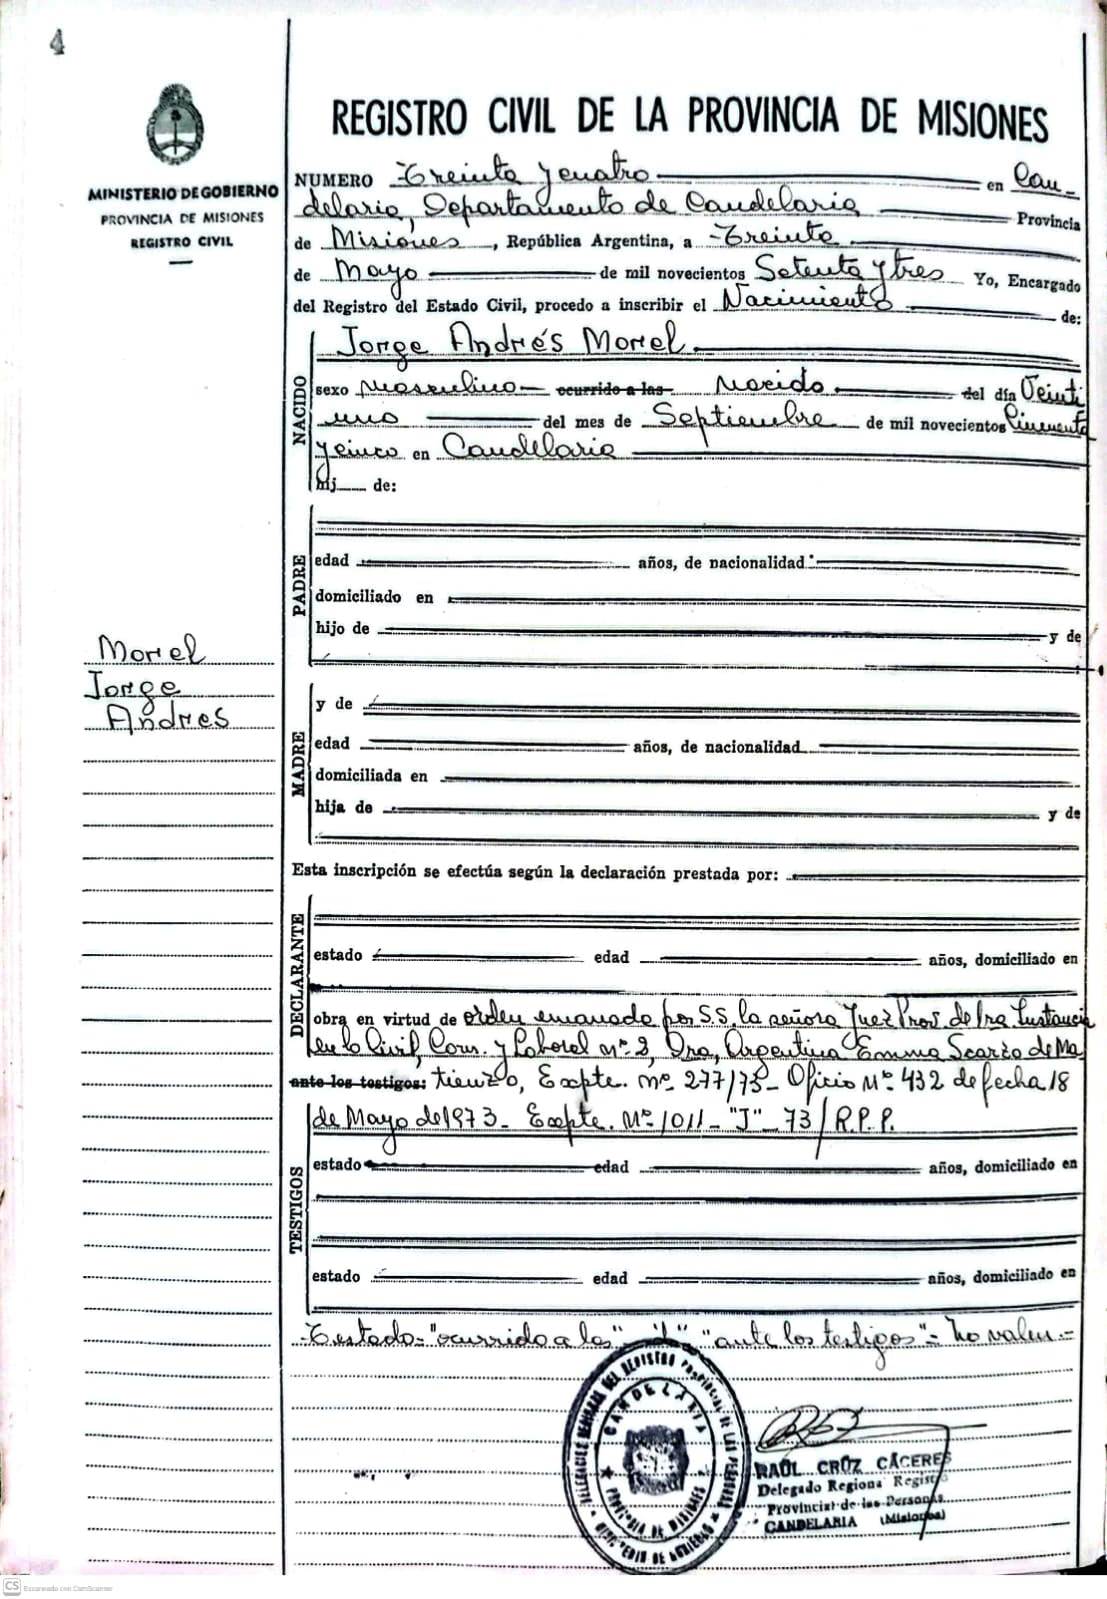 4
MINISTERIO DE GOBIERNO
PROVINCIA DE MISIONES
REGISTRO CIVIL
REGISTRO CIVIL DE LA PROVINCIA DE MISIONES
NUMERO Treinta y cuatro en Can-
delaria, Departamento de Candelaria Provincia
de Misiones, República Argentina, a Treinta
de Mayo de mil novecientos Setenta y tres Yo, Encargado
del Registro del Estado Civil, procedo a inscribir el Nacimiento de:
NACIDO
Jorge Andrés Morel
sexo Masculino ocurrido a las Nacido del día Veinti
uno del mes de Septiembre de mil novecientos Cincuenta
y cinco en Candelaria
hij de:
PADRE
edad años, de nacionalidad
domiciliado en
hijo de y de
Morel
Jorge
Andres
MADRE
y de
edad años, de nacionalidad
domiciliada en
hija de y de
Esta inscripción se efectúa según la declaración prestada por:
DECLARANTE
estado edad años, domiciliado en
obra en virtud de orden emanada por S.S. la señora Juez Prov. de 1ra Instancia
en lo Civil, Com. y Laboral nº 2, Dra, Argentina Emma Scarzo de Ma
ante los testigos: tienzo, Expte. nº 277/73- Oficio Nº 432 de fecha 18
de Mayo de 1973- Expte. Nº 1011- "J"- 73/R.P.P.
TESTIGOS
estado edad años, domiciliado en
estado edad años, domiciliado en
-Testado= "ocurrido a las" "l" "ante los testigos"= no valen.=
DELEGACION REGIONAL DEL REGISTRO PROVINCIAL DE LAS PERSONAS
CANDELARIA
PROVINCIA DE MISIONES
MINISTERIO DE GOBIERNO
RAÚL CRUZ CÁCERES
Delegado Regional Registro
Provincial de las Personas
CANDELARIA (Misiones)
CS Escaneado con CamScanner